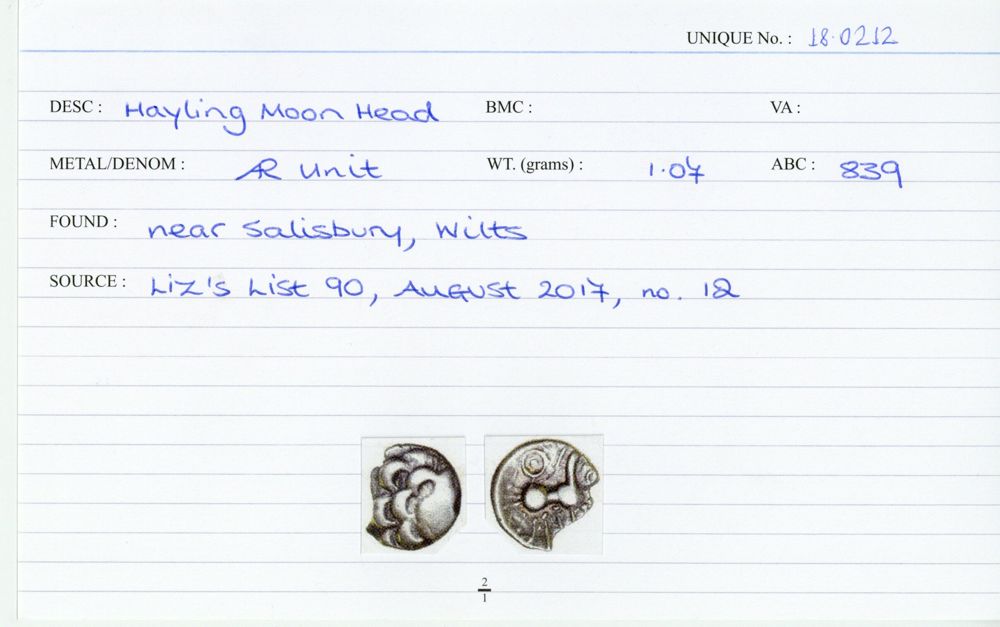 UNIQUE No. : 18.0212
DESC : Hayling Moon Head BMC : VA :
METAL/DENOM : AR Unit WT. (grams) : 1.07 ABC : 839
FOUND : near Salisbury, Wilts
SOURCE : Liz's List 90, August 2017, no. 12
2
1